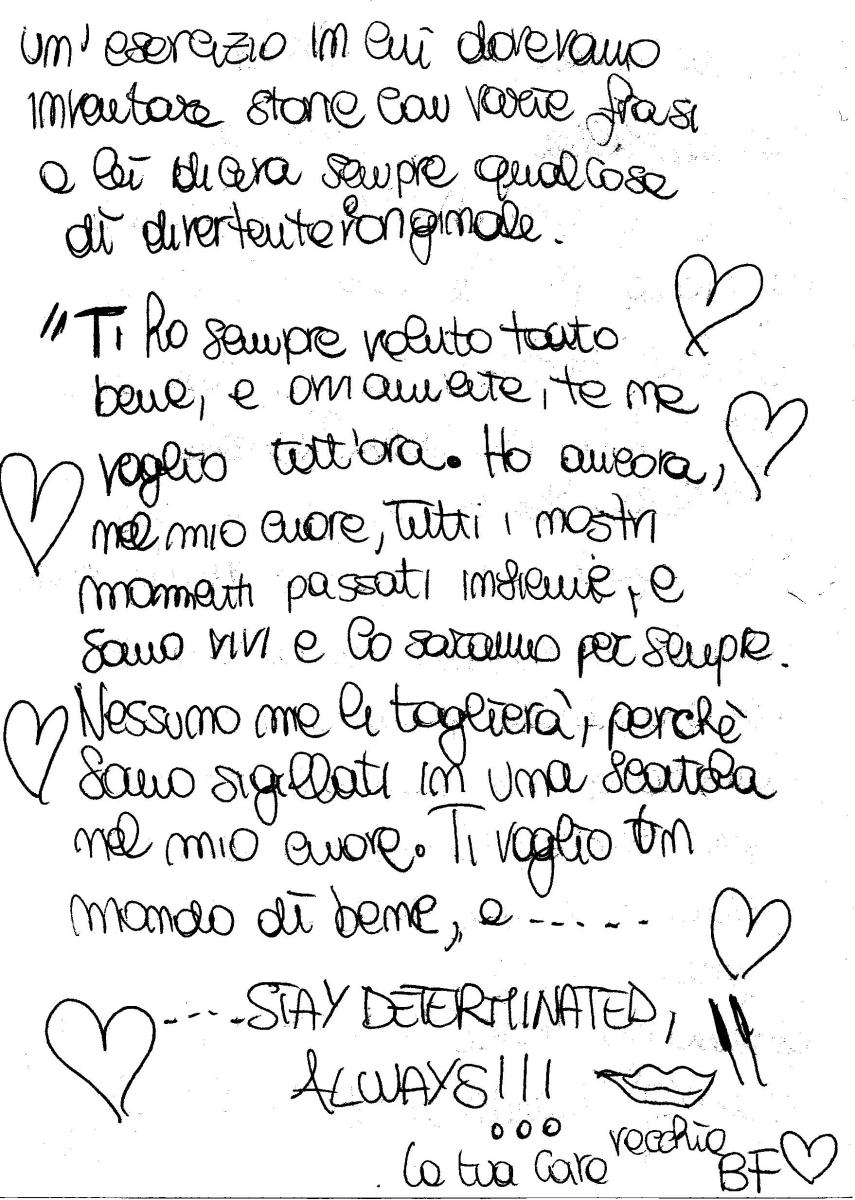 un' esercizio in cui dovevamo
inventare storie con varie frasi
e lei diceva sempre qualcosa
di divertente e originale.
"Ti ho sempre voluto tanto
bene, e ovviamente, te ne
voglio tutt'ora. Ho ancora,
nel mio cuore, Tutti i nostri
momenti passati insieme, e
sono vivi e lo saranno per sempre.
Nessuno me li toglierà, perchè
sono sigillati in una scatola
nel mio cuore. Ti voglio un
mondo di bene, e -----
----STAY DETERMINATED,
ALWAYS!!! "
ooo
La tua cara vecchia BF